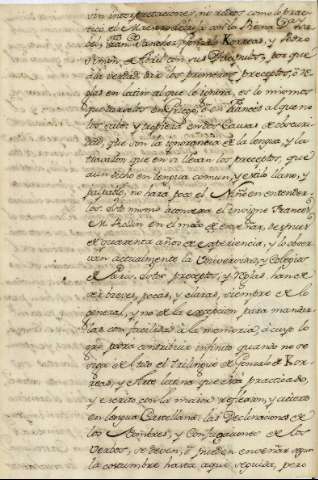 sin interpretaciones, no
Juan Sanchez, Gonzalo Korreas, y Pedro
Simon, de Abril con sus Discipulos, por que
dar verdad dar los primeros preceptos, ò re
glas en latin al que le ignora, es lo mismo
que darselos en Griego, ò en Francès al que no
los sabe; y
dad, que son la ignorancia de la lengua, y la
que en si llevan los preceptos, que
aun dicho en lengua comun, y estilo llano, y
no harà poco el Niño en entender
los. Esto mismo aconseja el insigne Frances
M. Rollin en el modo de enseñar, despues
de quarenta años de experiencia, y lo obser
van actualmente la Universidad, y Colegios
de Paris. Estos preceptos, y Reglas han de
ser breves, pocas, y claras, siempre de lo
general, y no de la excepcion para mandar
las con facilidad à la memoria; à cuyo lo
gro podra contribuir infinito quando no se
de todo el trilingue de Gonzalo de Kor
reas, y Arte latina que està practicado,
y escrito con la maior reflexion, y
en lengua Castellana: las Declinaciones de
los Nombres, y Conjugaciones de los
Verbos, se deven, ò pueden enseñar segun
la costumbre hasta aqui seguida, pero